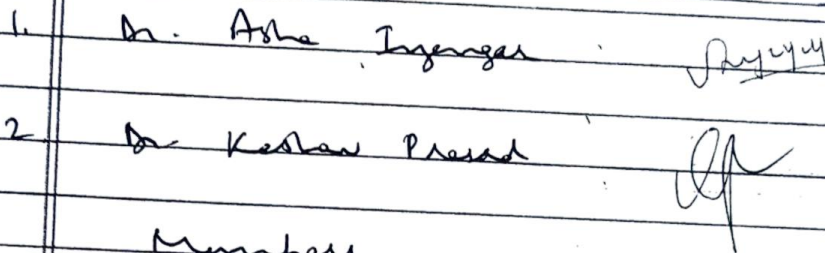 1. Dr. Asha Iyengar
2. Dr Keshav Prasad
Members